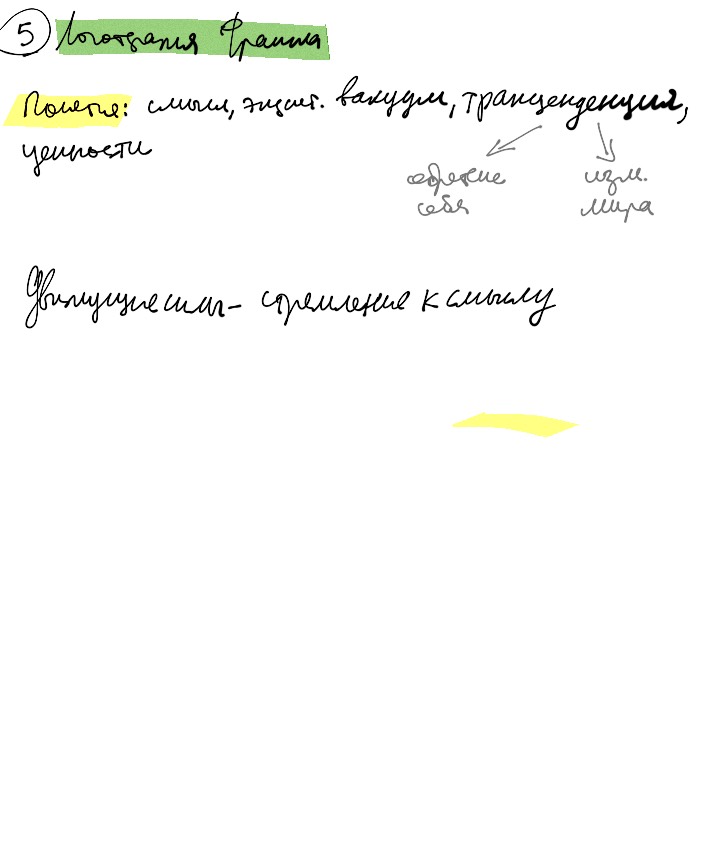 5 Логотерапия Франкла
Понятия: смысл, экзист. вакуум, трансценденция,
ценности
себя
изм.
мира
Движущие силы – стремление к смыслу